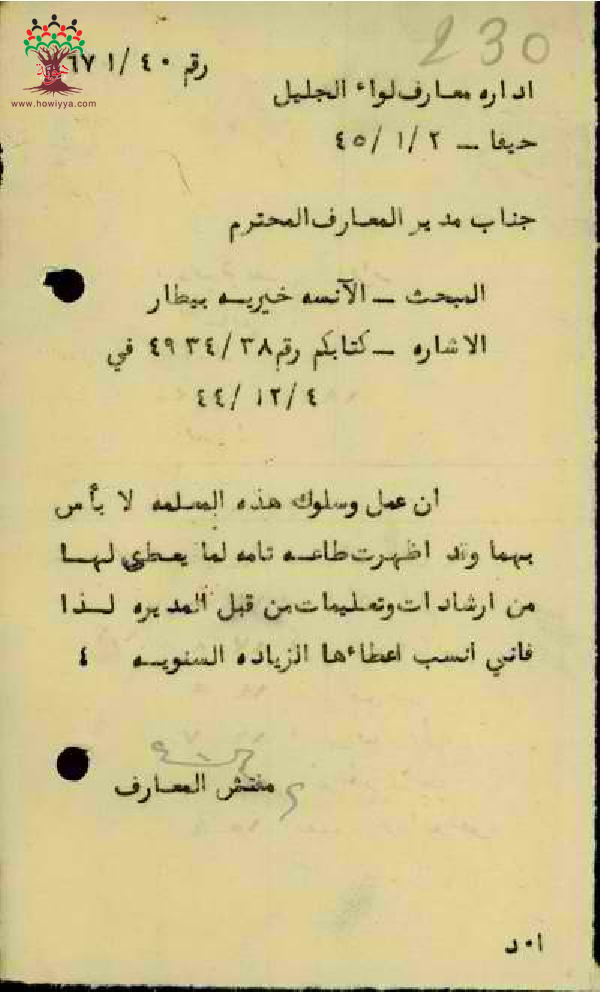 230
رقم ٦٧١/٤٠
www.howiyya.com
اداره معارف لواء الجليل
حيفا – ٤٥/١/٢
جناب مدير المعارف المحترم
المبحث – الآنسه خيريه بيطار
الاشاره – كتابكم رقم ٤٩٣٤/٣٨ في
٤٤/١٢/٤
ان عمل وسلوك هذه المعلمه لا بأس
بهما وقد اظهرت طاعه تامه لما يعطى لها
من ارشادات وتعليمات من قبل المديره لذا
فاني انسب اعطاءها الزياده السنويه ٤
مفتش المعارف
ا٠د